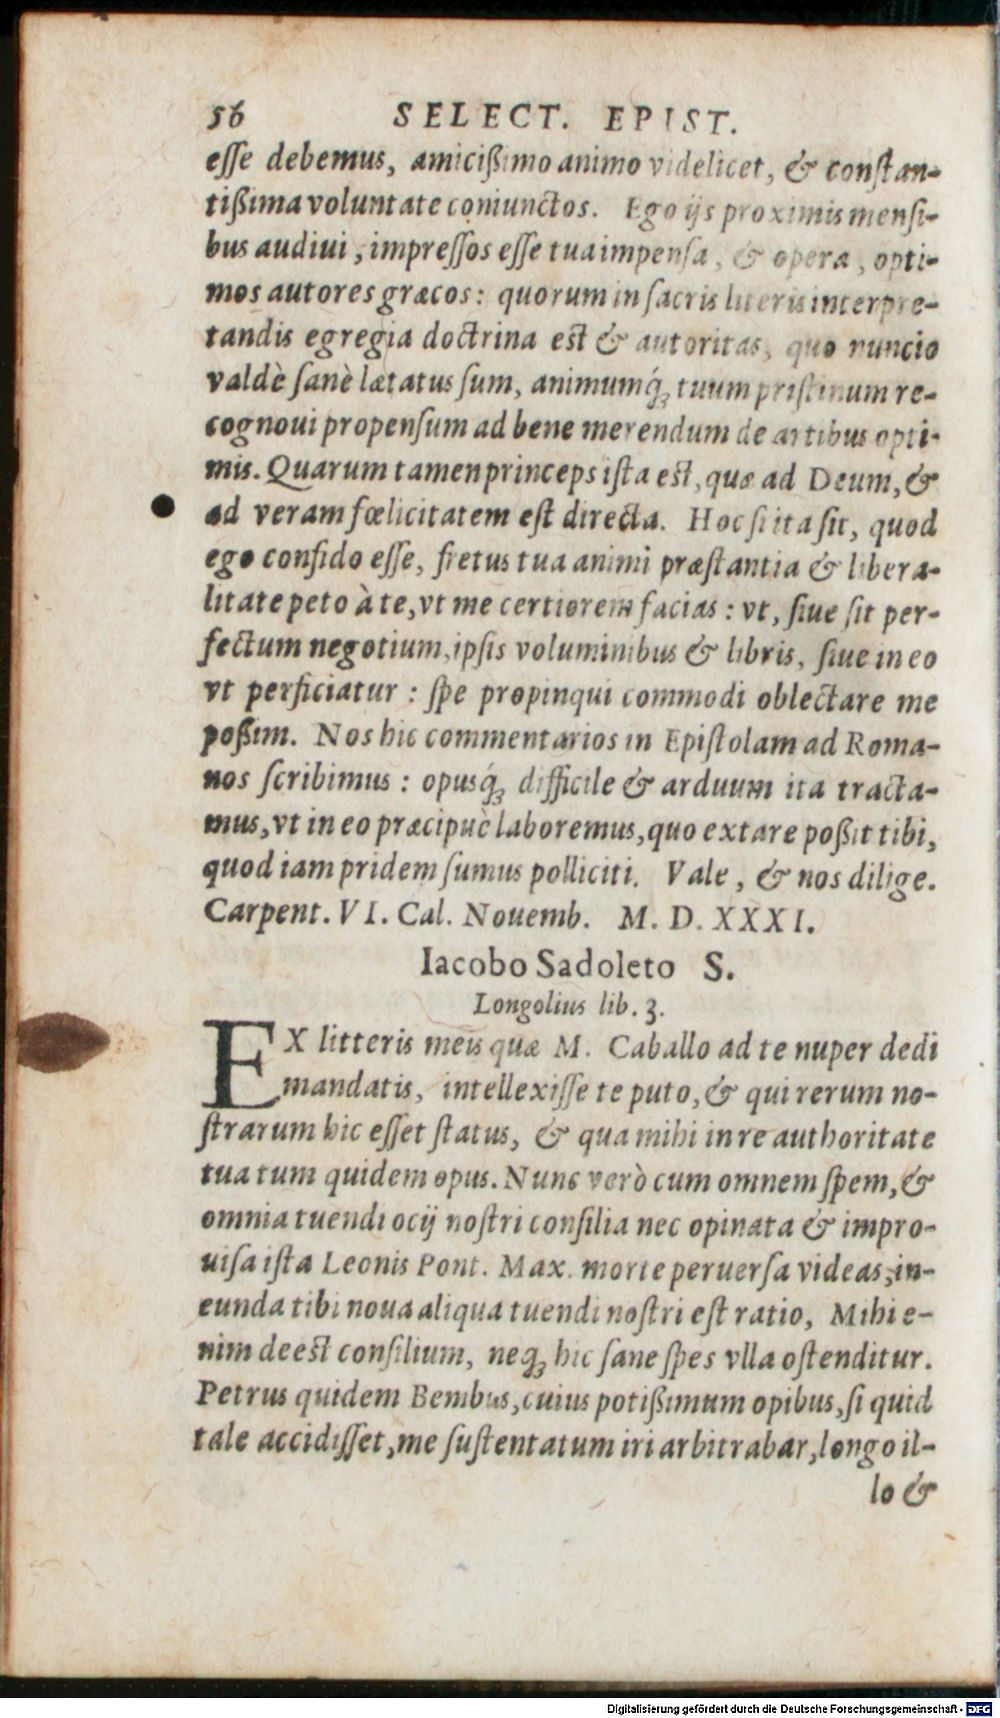 56 SELECT. EPIST.
esse debemus, amicißimo animo videlicet, & constan-
tißima voluntate coniunctos. Ego ijs proximis mensi-
bus audiui, impressos esse tua impensa, & opera, opti-
mos autores græcos: quorum in sacris literis interpre-
tandis egregia doctrina est & autoritas, quo nuncio
valdè sanè lætatus sum, animumq́; tuum pristinum re-
cognoui propensum ad bene merendum de artibus opti-
mis. Quarum tamen princeps ista est, quæ ad Deum, &
ad veram fœlicitatem est directa. Hoc si ita sit, quod
ego confido esse, fretus tua animi præstantia & libera-
litate peto à te, vt me certiorem facias: vt, siue sit per-
fectum negotium, ipsis voluminibus & libris, siue in eo
vt perficiatur: spe propinqui commodi oblectare me
poßim. Nos hic commentarios in Epistolam ad Roma-
nos scribimus: opusq́; difficile & arduum ita tracta-
mus, vt in eo præcipuè laboremus, quo extare poßit tibi,
quod iam pridem sumus polliciti. Vale, & nos dilige.
Carpent. VI. Cal. Nouemb. M. D. XXXI.
Iacobo Sadoleto S.
Longolius lib. 3.
EX litteris meis quæ M. Caballo ad te nuper dedi
mandatis, intellexisse te puto, & qui rerum no-
strarum hic esset status, & qua mihi in re authoritate
tua tum quidem opus. Nunc verò cum omnem spem, &
omnia tuendi ocij nostri consilia nec opinata & impro-
uisa ista Leonis Pont. Max. morte peruersa videas, in-
eunda tibi noua aliqua tuendi nostri est ratio, Mihi e-
nim deest consilium, neq; hic sane spes vlla ostenditur.
Petrus quidem Bembus, cuius potißimum opibus, si quid
tale accidisset, me sustentatum iri arbitrabar, longo il-
lo &
Digitalisierung gefördert durch die Deutsche Forschungsgemeinschaft - DFG